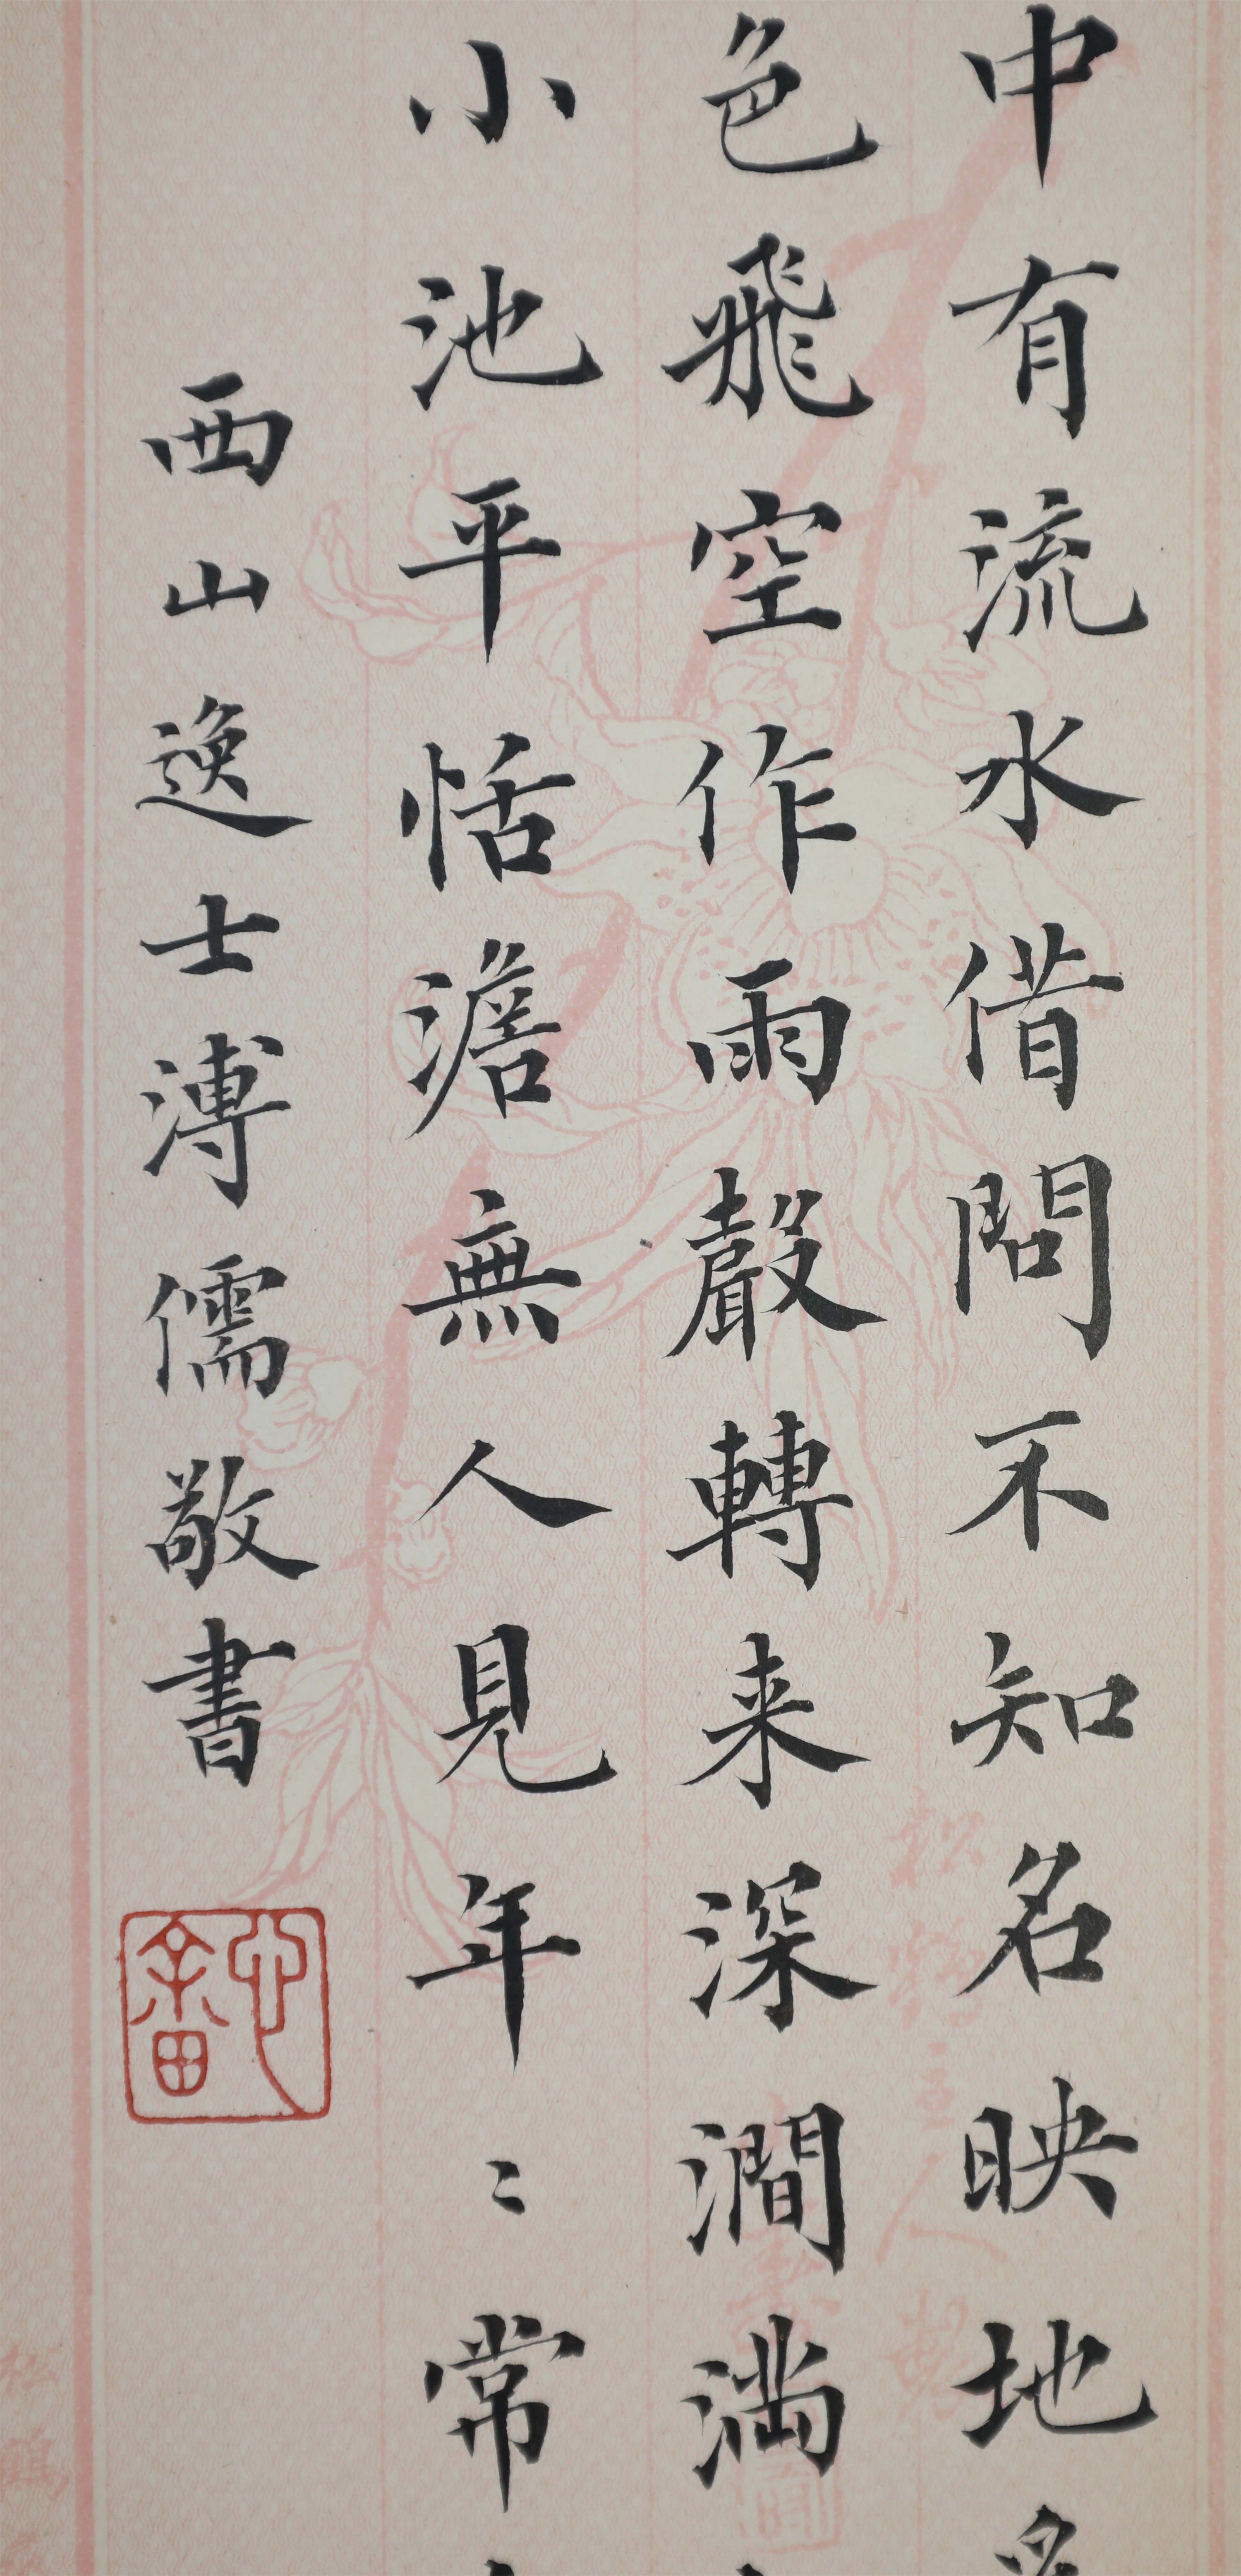 中有流水借問不知名映地為
色飛空作雨聲轉来深澗滿
小池平恬澹無人見年〻常
西山逸士溥儒敬書
心畬